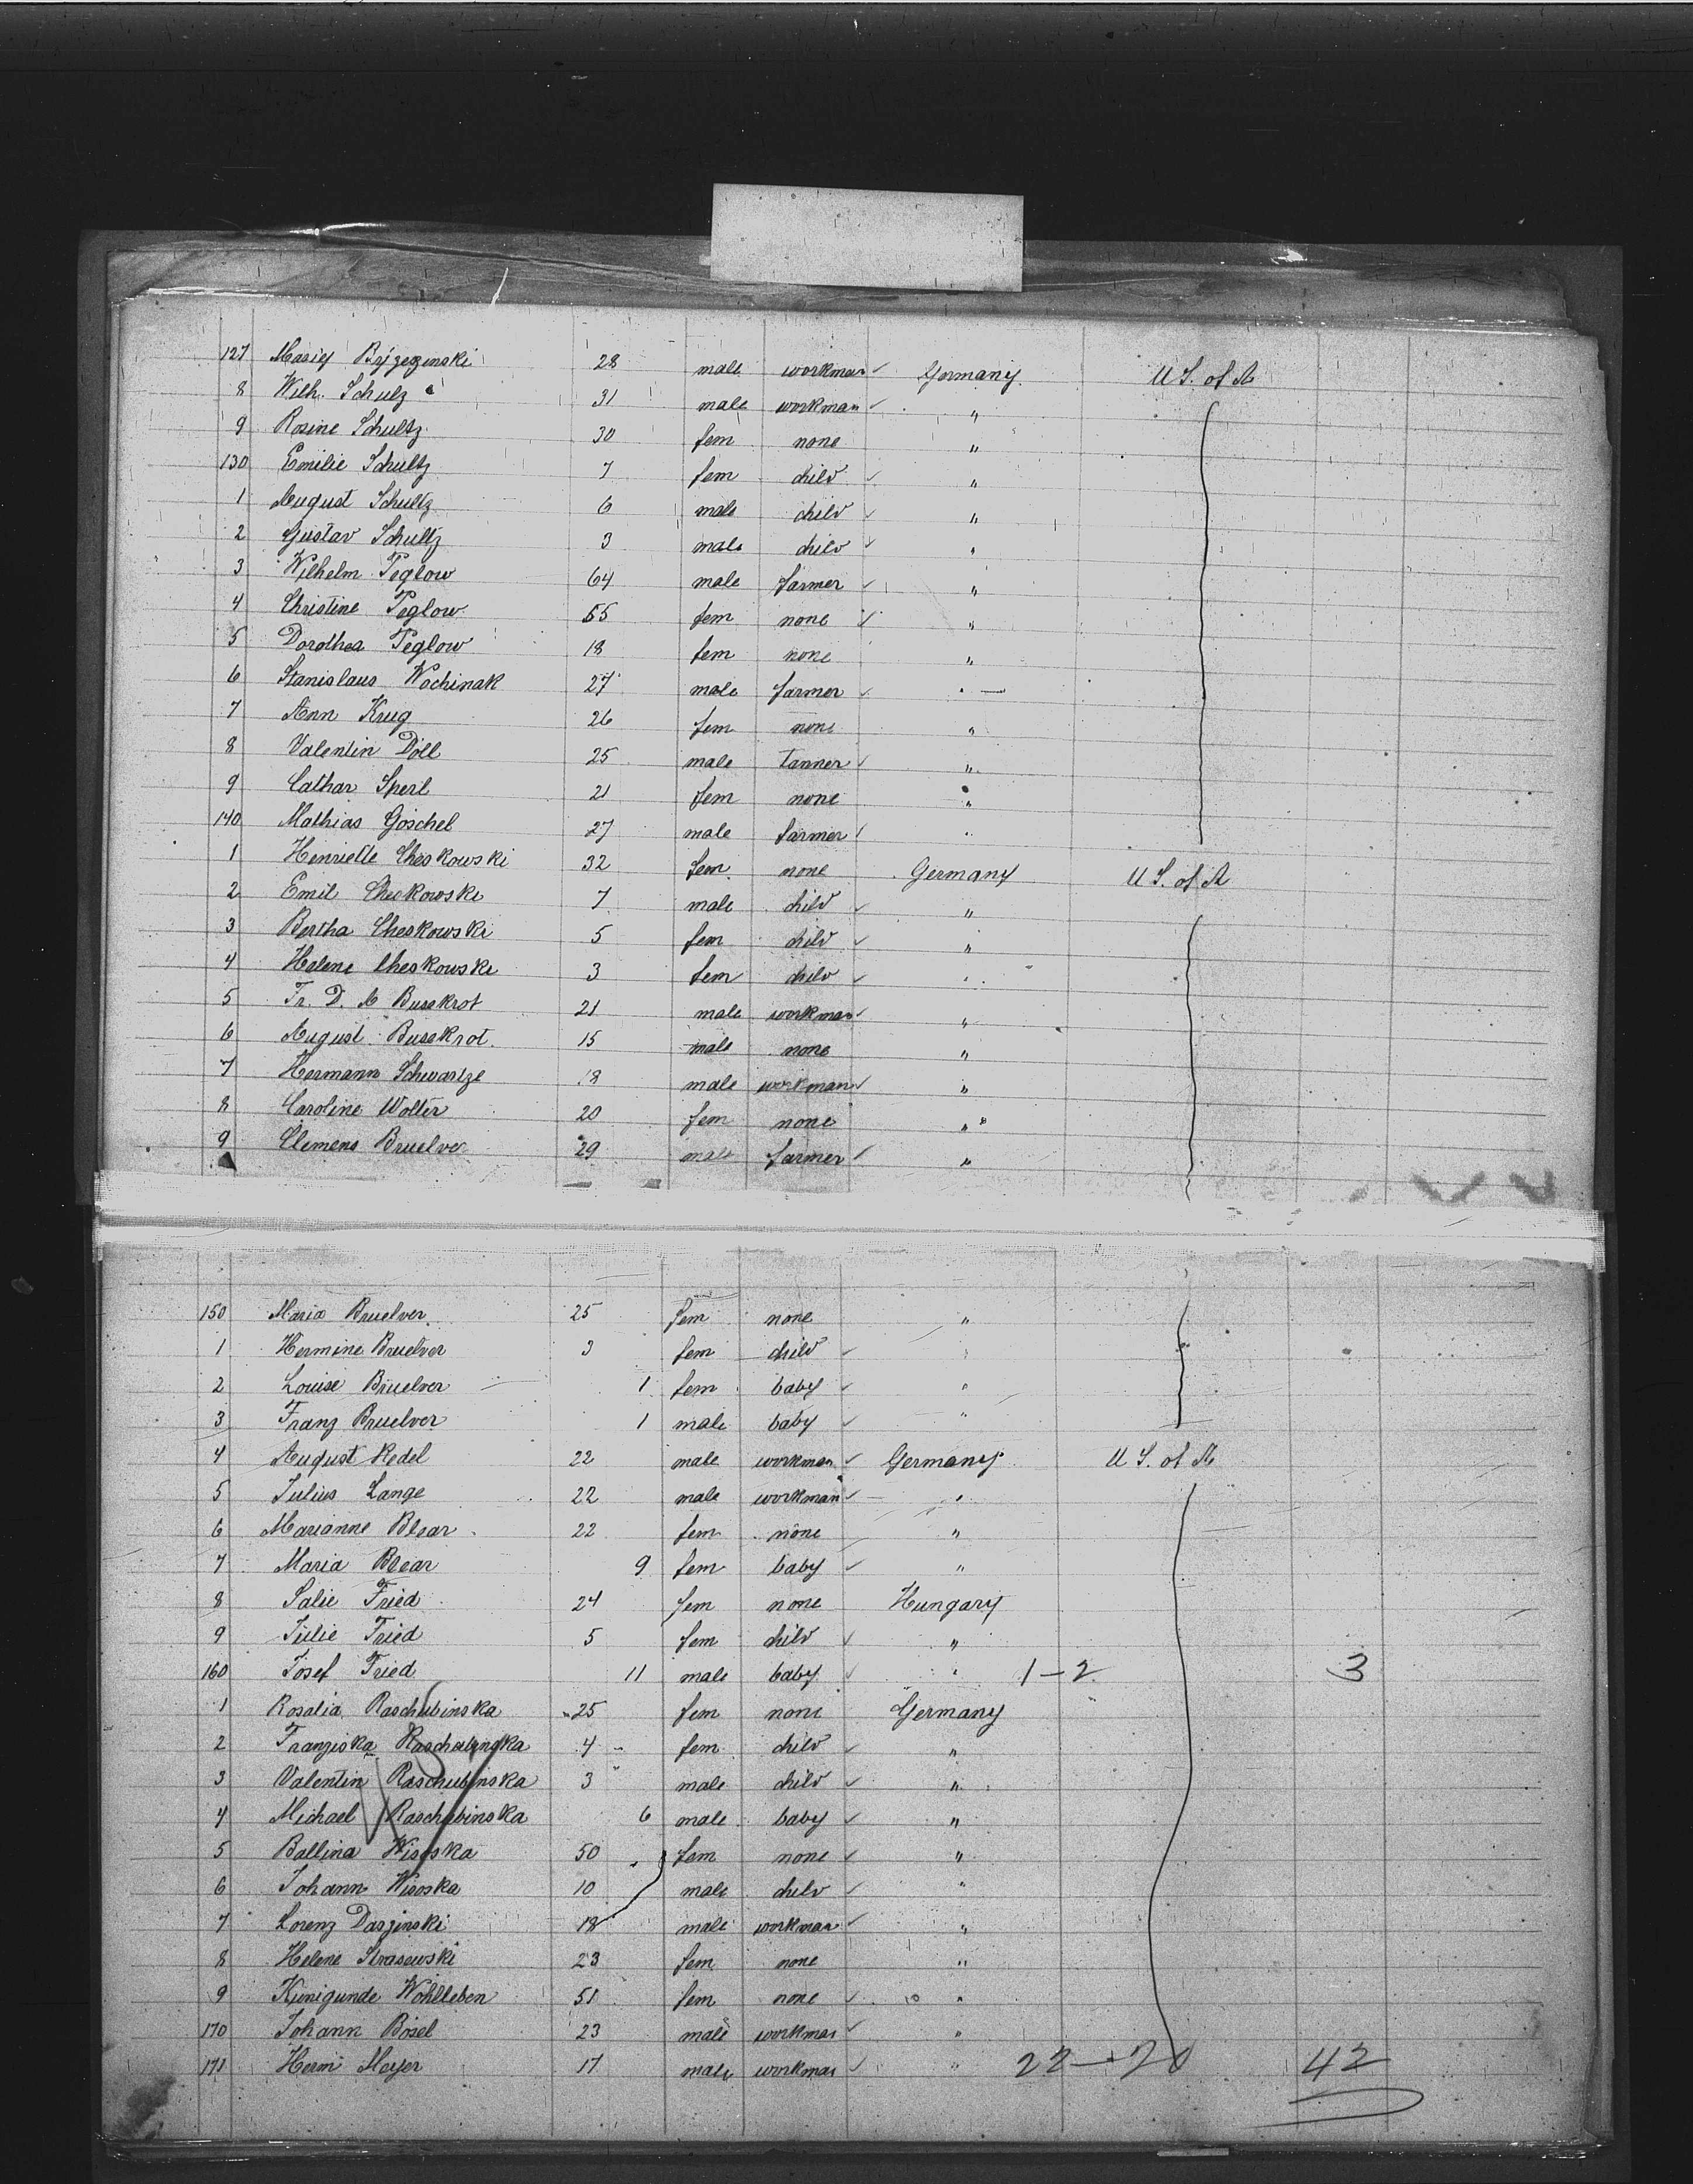 127 Mariey Brjzezenski 28 male workman Germany U S. of A
8 Wilh. Schulz 31 male workman "
9 Rosine Schultz 30 fem none "
130 Emilie Schultz 7 fem child "
1 August Schultz 6 male child "
2 Gustav Schultz 3 male child "
3 Wilhelm Teglow 64 male farmer "
4 Christine Teglow 55 fem none "
5 Dorothea Teglow 18 fem none "
6 Stanislaus Wochinak 27 male farmer "
7 Ann Krug 26 fem none "
8 Valentin Döll 25 male tanner "
9 Cathar Sperl 21 fem none "
140 Mathias Göschel 27 male farmer "
1 Henriette Cheskowski 32 fem. none Germany U S. of A
2 Emil Cheskowski 7 male child "
3 Bertha Cheskowski 5 fem child "
4 Helene Cheskowski 3 fem child "
5 Fr. D. A Busekrot 21 male workman "
6 August Busekrot. 15 male none "
7 Hermann Schwartze 18 male workman "
8 Caroline Wolter 20 fem none "
9 Clemens Bruelver 29 male farmer "
150 Maria Bruelver 25 fem none "
1 Hermine Bruelver 3 fem child "
2 Louise Bruelver 1 fem baby "
3 Franz Bruelver 1 male baby "
4 August Redel 22 male workman Germany U S. of A
5 Julius Lange 22 male workman "
6 Marianne Blear 22 fem none "
7 Maria Blear 9 fem baby "
8 Salie Fried 24 fem none Hungary
9 Julie Fried 5 fem child "
160 Josef Fried 11 male baby " 1-2 3
1 Rosalia Raschubinska 25 fem none Germany
2 Franziska Raschubinska 4 fem child "
3 Valentin Raschubinska 3 male child "
4 Michael Raschubinska 6 male baby "
5 Ballina Wisoska 50 fem none "
6 Johann Wisoska 10 male child "
7 Lorenz Daszinski 18 male workman "
8 Helene Strasewski 23 fem none "
9 Kunigunde Wohlleben 51 fem none "
170 Johann Bösel 23 male workman "
171 Herm Meyer 17 male workman " 22-20 42